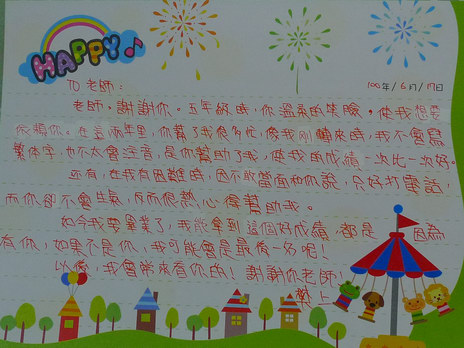 HAPPY
TO 老師:
100年/6月/17日
老師,謝謝你。五年級時,你溫柔的笑臉。使我想要
依賴你。在這兩年里,你幫了我很多忙,像我剛轉來時,我不會寫
繁体字,也不太會注音,是你幫助了我,使我的成績一次比一次好。
还有,在我有困難時,因不敢當面和你說,只好打電話,
而你卻不會生氣,反而很熱心得幫助我。
如今我要畢業了,我能拿到這個好成績,都是因為
有你,如果不是你,我可能會是最後一名呢!
以後,我會常來看你的!謝謝你老師!
上